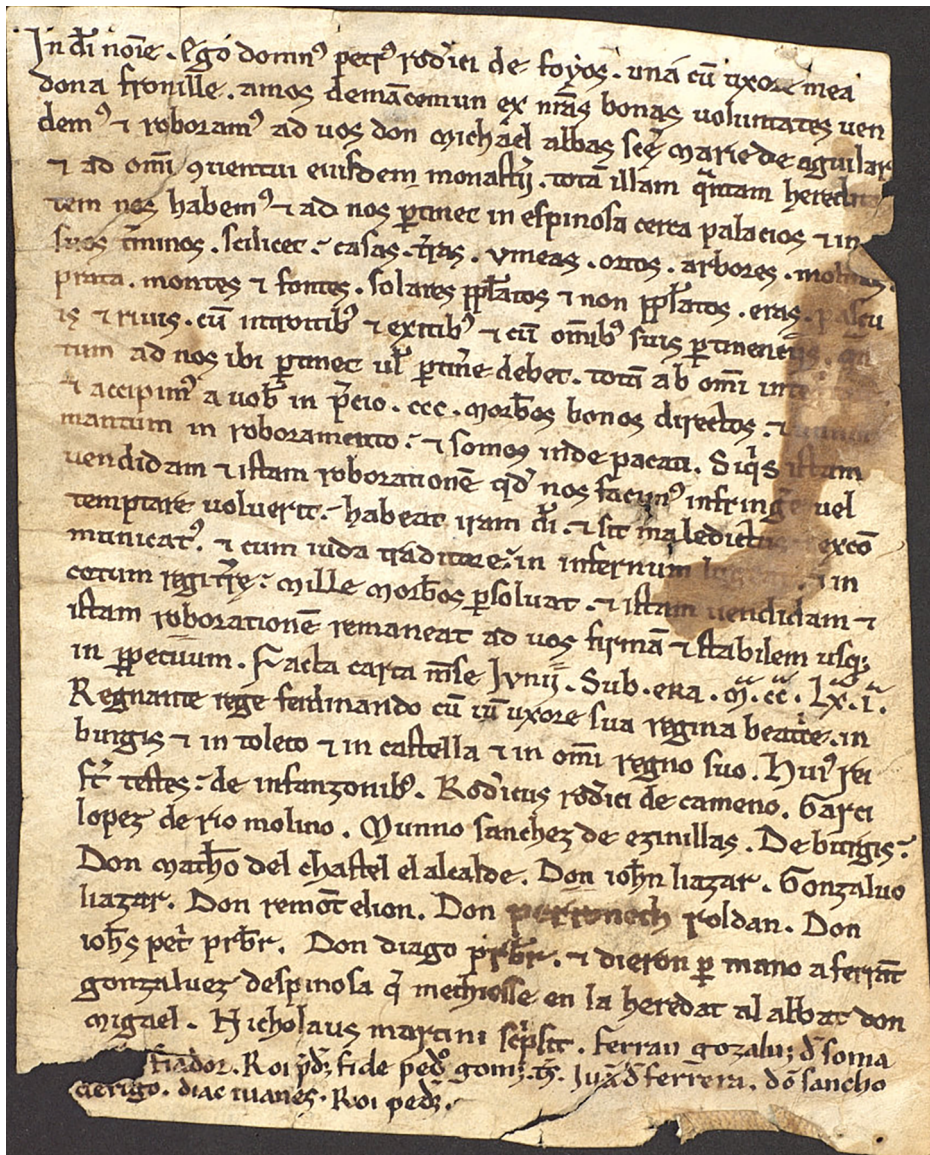 In dei noie. Ego domn' petr' rod'ici de foyos. una cu uxore mea
dona fronille. amos demacemun ex nras bonas voluntates ven
dem' ⁊ roboram' ad uos don michael abbas sce marie de aguilar
⁊ ad omi ꝯuentui eiusdem monastij. tota illam qntam heredita
tem nos habem' ⁊ ad nos ꝑtinec in espinosa cerca palacios ⁊ in
suos tminos. scilicet. casas. tras. vineas. ortos. arbores. molinos.
prata. montes ⁊ fontes. solares pplatos ⁊ non pplatos. eras. pascu
is ⁊ riuis. cu introitib' ⁊ exitib' ⁊ cu omib' suis ꝑtinentijs. qn
tum ad nos ibi ꝑtinec ul ꝑtine debet. tota ab omi
⁊ accipim' a uob in pcio. ccc. morbos bonos directos. ⁊
mantum in roboramento. ⁊ somos inde pacati. Siqis istam
uendidam ⁊ istam roboratione qd nos facim' infringe uel
temptare uoluerit. habeat iram di. ⁊ sit maledictus exco
municat'. ⁊ cum iuda traditore. in infernum ⁊ in
cotum regi tre. mille morbos ꝑsoluat. ⁊ istam uendidam ⁊
istam roboratione remaneat ad uos firma ⁊ stabilem usq;
in ppetuum. Facta carta mse Ivnij. Sub. era. m. cc. Lx. i.
Regnante rege ferdinando cu iu uxore sua regina beatrce. in
burgis ⁊ in toleto ⁊ in castella ⁊ in omi regno suo. Hui' rei
st testes. de infanzonib'. Rod'icus rod'ici de cameno. Garci
lopez de rio molino. Munno sanchez de ezinillas. De burgis.
Don matho del chastel el alcalde. Don iohn liazar. Gonzaluo
liazar. Don remot elion. Don roldan. Don
iohs pet prbr. Don diago prbr. ⁊ dieron ꝑ mano a ferrat
gonzaluez despinosa q mechiesse en la heredat al abbat don
migael. Nicholaus martini scpsit. ferran gozalu; d soma
fiador. Roi pd; fide pedo gom;. ts. Iua d ferrera. do sancho
clerigo. diac iuanes. Roi ped;.